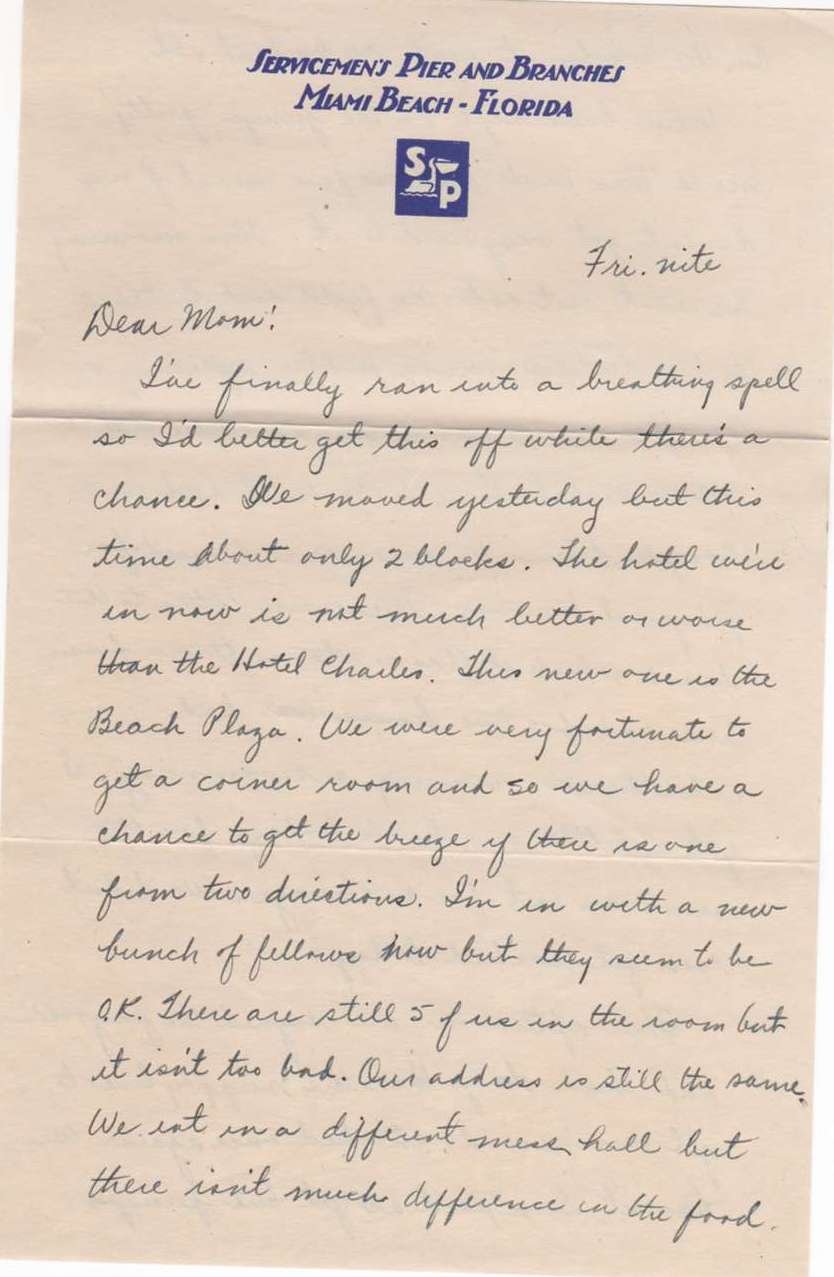 SERVICEMEN'S PIER AND BRANCHES
MIAMI BEACH - FLORIDA
S P
Fri. nite
Dear Mom!
I've finally ran into a breathing spell
so I'd better get this off while there's a
chance. We moved yesterday but this
time about only 2 blocks. The hotel we're
in now is not much better or worse
than the Hotel Charles. This new one is the
Beach Plaza. We were very fortunate to
get a corner room and so we have a
chance to get the breeze if there is one
from two directions. I'm in with a new
bunch of fellows now but they seem to be
O.K. There are still 5 of us in the room but
it isn't too bad. Our address is still the same.
We eat in a different mess hall but
there isn't much difference in the food.